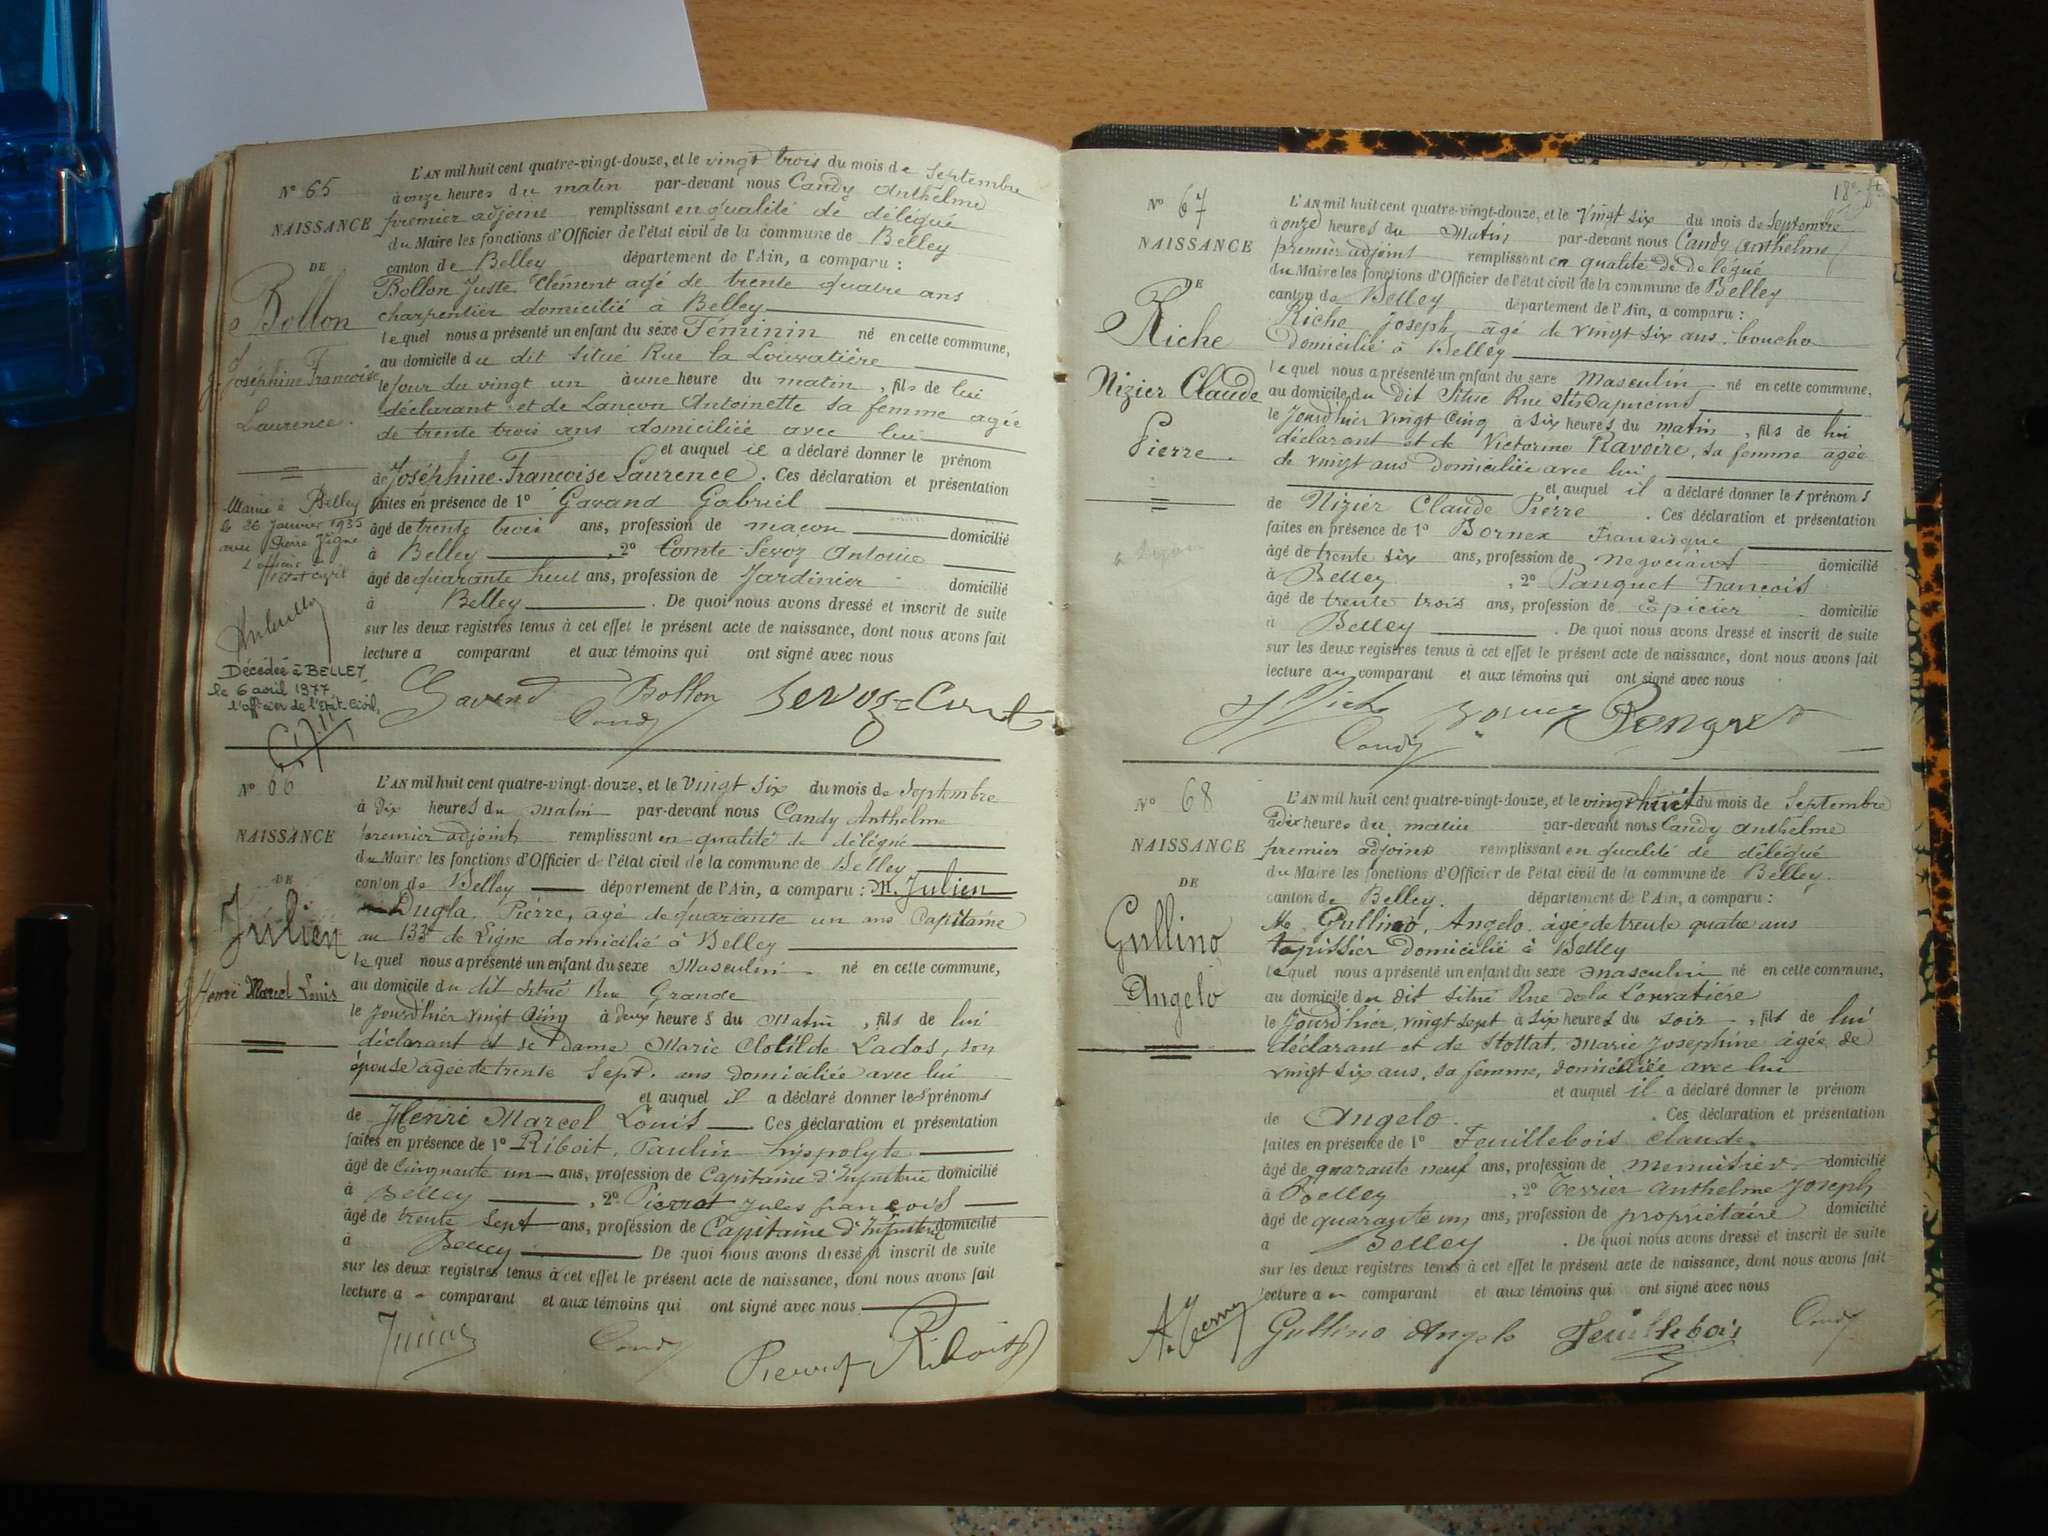 N° 65
NAISSANCE
DE
Bollon
Joséphine Francoise
Laurence.
Marié à Belley
le 26 Janvier 1935
avec Pierre Vigne
l'officier
état civil
Décédée à BELLEY
le 6 avril 1977
l'officier de l'Etat Civil,
L'AN mil huit cent quatre-vingt-douze, et le vingt trois du mois de Septembre
à onze heures du matin par-devant nous Candy Anthelme
premier adjoint remplissant en qualité de délégué
du Maire les fonctions d'Officier de l'état civil de la commune de Belley
canton de Belley département de l'Ain, a comparu :
Bollon Juste Clément agé de trente quatre ans
charpentier domicilié à Belley
lequel nous a présenté un enfant du sexe Féminin né en cette commune,
au domicile du dit situé Rue la Louvatière
le jour du vingt un à une heure du matin, fils de lui
déclarant et de Lançon Antoinette sa femme agée
de trente trois ans domiciliée avec lui
et auquel il a déclaré donner le prénom
de Joséphine Francoise Laurence. Ces déclaration et présentation
faites en présence de 1° Gavand Gabriel
âgé de trente trois ans, profession de maçon domicilié
à Belley, 2° Comte-Sevoz Antoine
âgé de quarante huit ans, profession de Jardinier domicilié
à Belley. De quoi nous avons dressé et inscrit de suite
sur les deux registres tenus à cet effet le présent acte de naissance, dont nous avons fait
lecture a comparant et aux témoins qui ont signé avec nous
Gavend Bollon Sevoz
Candy
N° 66
NAISSANCE
DE
Julien
Henri Marcel Louis
L'AN mil huit cent quatre-vingt-douze, et le vingt six du mois de Septembre
à Dix heures du Matin par-devant nous Candy Anthelme
premier adjoint remplissant en qualité de délégué
du Maire les fonctions d'Officier de l'état civil de la commune de Belley
canton de Belley département de l'Ain, a comparu : M. Julien
Dugla, Pierre, agé de quarante un ans Capitaine
au 133e de Ligne domicilié à Belley
lequel nous a présenté un enfant du sexe Masculin né en cette commune,
au domicile du dit situé Rue Grande
le Jourd'hier vingt Cinq à deux heures du Matin, fils de lui
déclarant et de Dame Marie Clotilde Lados, son
épouse agée de trente Sept. ans domiciliée avec lui
et auquel il a déclaré donner les prénoms
de Henri Marcel Louis Ces déclaration et présentation
faites en présence de 1° Riboit, Paulin hyppolyte
âgé de Cinquante un ans, profession de Capitaine d'Infanterie domicilié
à Belley, 2° Pierrot Jules françois
âgé de trente Sept ans, profession de Capitaine d'Infanterie domicilié
à Belley De quoi nous avons dressé et inscrit de suite
sur les deux registres tenus à cet effet le présent acte de naissance, dont nous avons fait
lecture a comparant et aux témoins qui ont signé avec nous
Candy Pierrot Riboit
N° 67
NAISSANCE
DE
Riche
Nizier Claude
Pierre.
L'AN mil huit cent quatre-vingt-douze, et le vingt six du mois de Septembre
à onze heures du Matin par-devant nous Candy Anthelme
premier adjoint remplissant en qualité de délégué
du Maire les fonctions d'Officier de l'état civil de la commune de Belley
canton de Belley département de l'Ain, a comparu :
Riche Joseph, âgé de vingt six ans, boucher
Domicilié à Belley
lequel nous a présenté un enfant du sexe Masculin né en cette commune,
au domicile du dit Situé Rue des Capucins
le Jourd'hier vingt Cinq à six heures du matin, fils de lui
déclarant et de Victorine Ravoire, sa femme agée
de vingt ans Domiciliée avec lui
et auquel il a déclaré donner les prénoms
de Nizier Claude Pierre. Ces déclaration et présentation
faites en présence de 1° Bornex Francisque
âgé de trente six ans, profession de negociant domicilié
à Belley, 2° Panguet François
âgé de trente trois ans, profession de Epicier domicilié
à Belley. De quoi nous avons dressé et inscrit de suite
sur les deux registres tenus à cet effet le présent acte de naissance, dont nous avons fait
lecture au comparant et aux témoins qui ont signé avec nous
Riche
Candy
N° 68
NAISSANCE
DE
Gullino
Angelo
L'AN mil huit cent quatre-vingt-douze, et le vingt huit du mois de Septembre
à dix heures du matin par-devant nous Candy Anthelme
premier adjoint remplissant en qualité de délégué
du Maire les fonctions d'Officier de l'état civil de la commune de Belley.
canton de Belley. département de l'Ain, a comparu :
M. Gullino, Angelo. âgé de trente quatre ans
tapissier domicilié à Belley
lequel nous a présenté un enfant du sexe masculin né en cette commune,
au domicile du dit situé Rue de la Louvatière
le Jourd'hier, vingt sept à six heures du soir, fils de lui
déclarant et de Stottat, Marie Josephine âgée de
vingt six ans, sa femme, domiciliée avec lui
et auquel il a déclaré donner le prénom
de Angelo. Ces déclaration et présentation
faites en présence de 1° Feuillebois Claude.
âgé de quarante neuf ans, profession de Menuisier, domicilié
à Belley, 2° Terrier Anthelme Joseph
âgé de quarante un ans, profession de propriétaire domicilié
a Belley. De quoi nous avons dressé et inscrit de suite
sur les deux registres tenus à cet effet le présent acte de naissance, dont nous avons fait
lecture a comparant et aux témoins qui ont signé avec nous
Gullino Angelo Feuillebois Candy